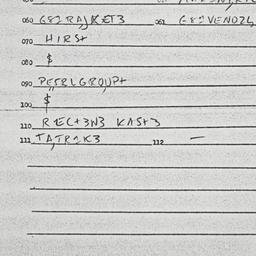 060 G82RAJKET3 061 G82VENDZL
070 HIRST
080 $
090 PETRLGROUPT
100 $
110 RECT3N3 KAST3
111 TATR2K3 112 —